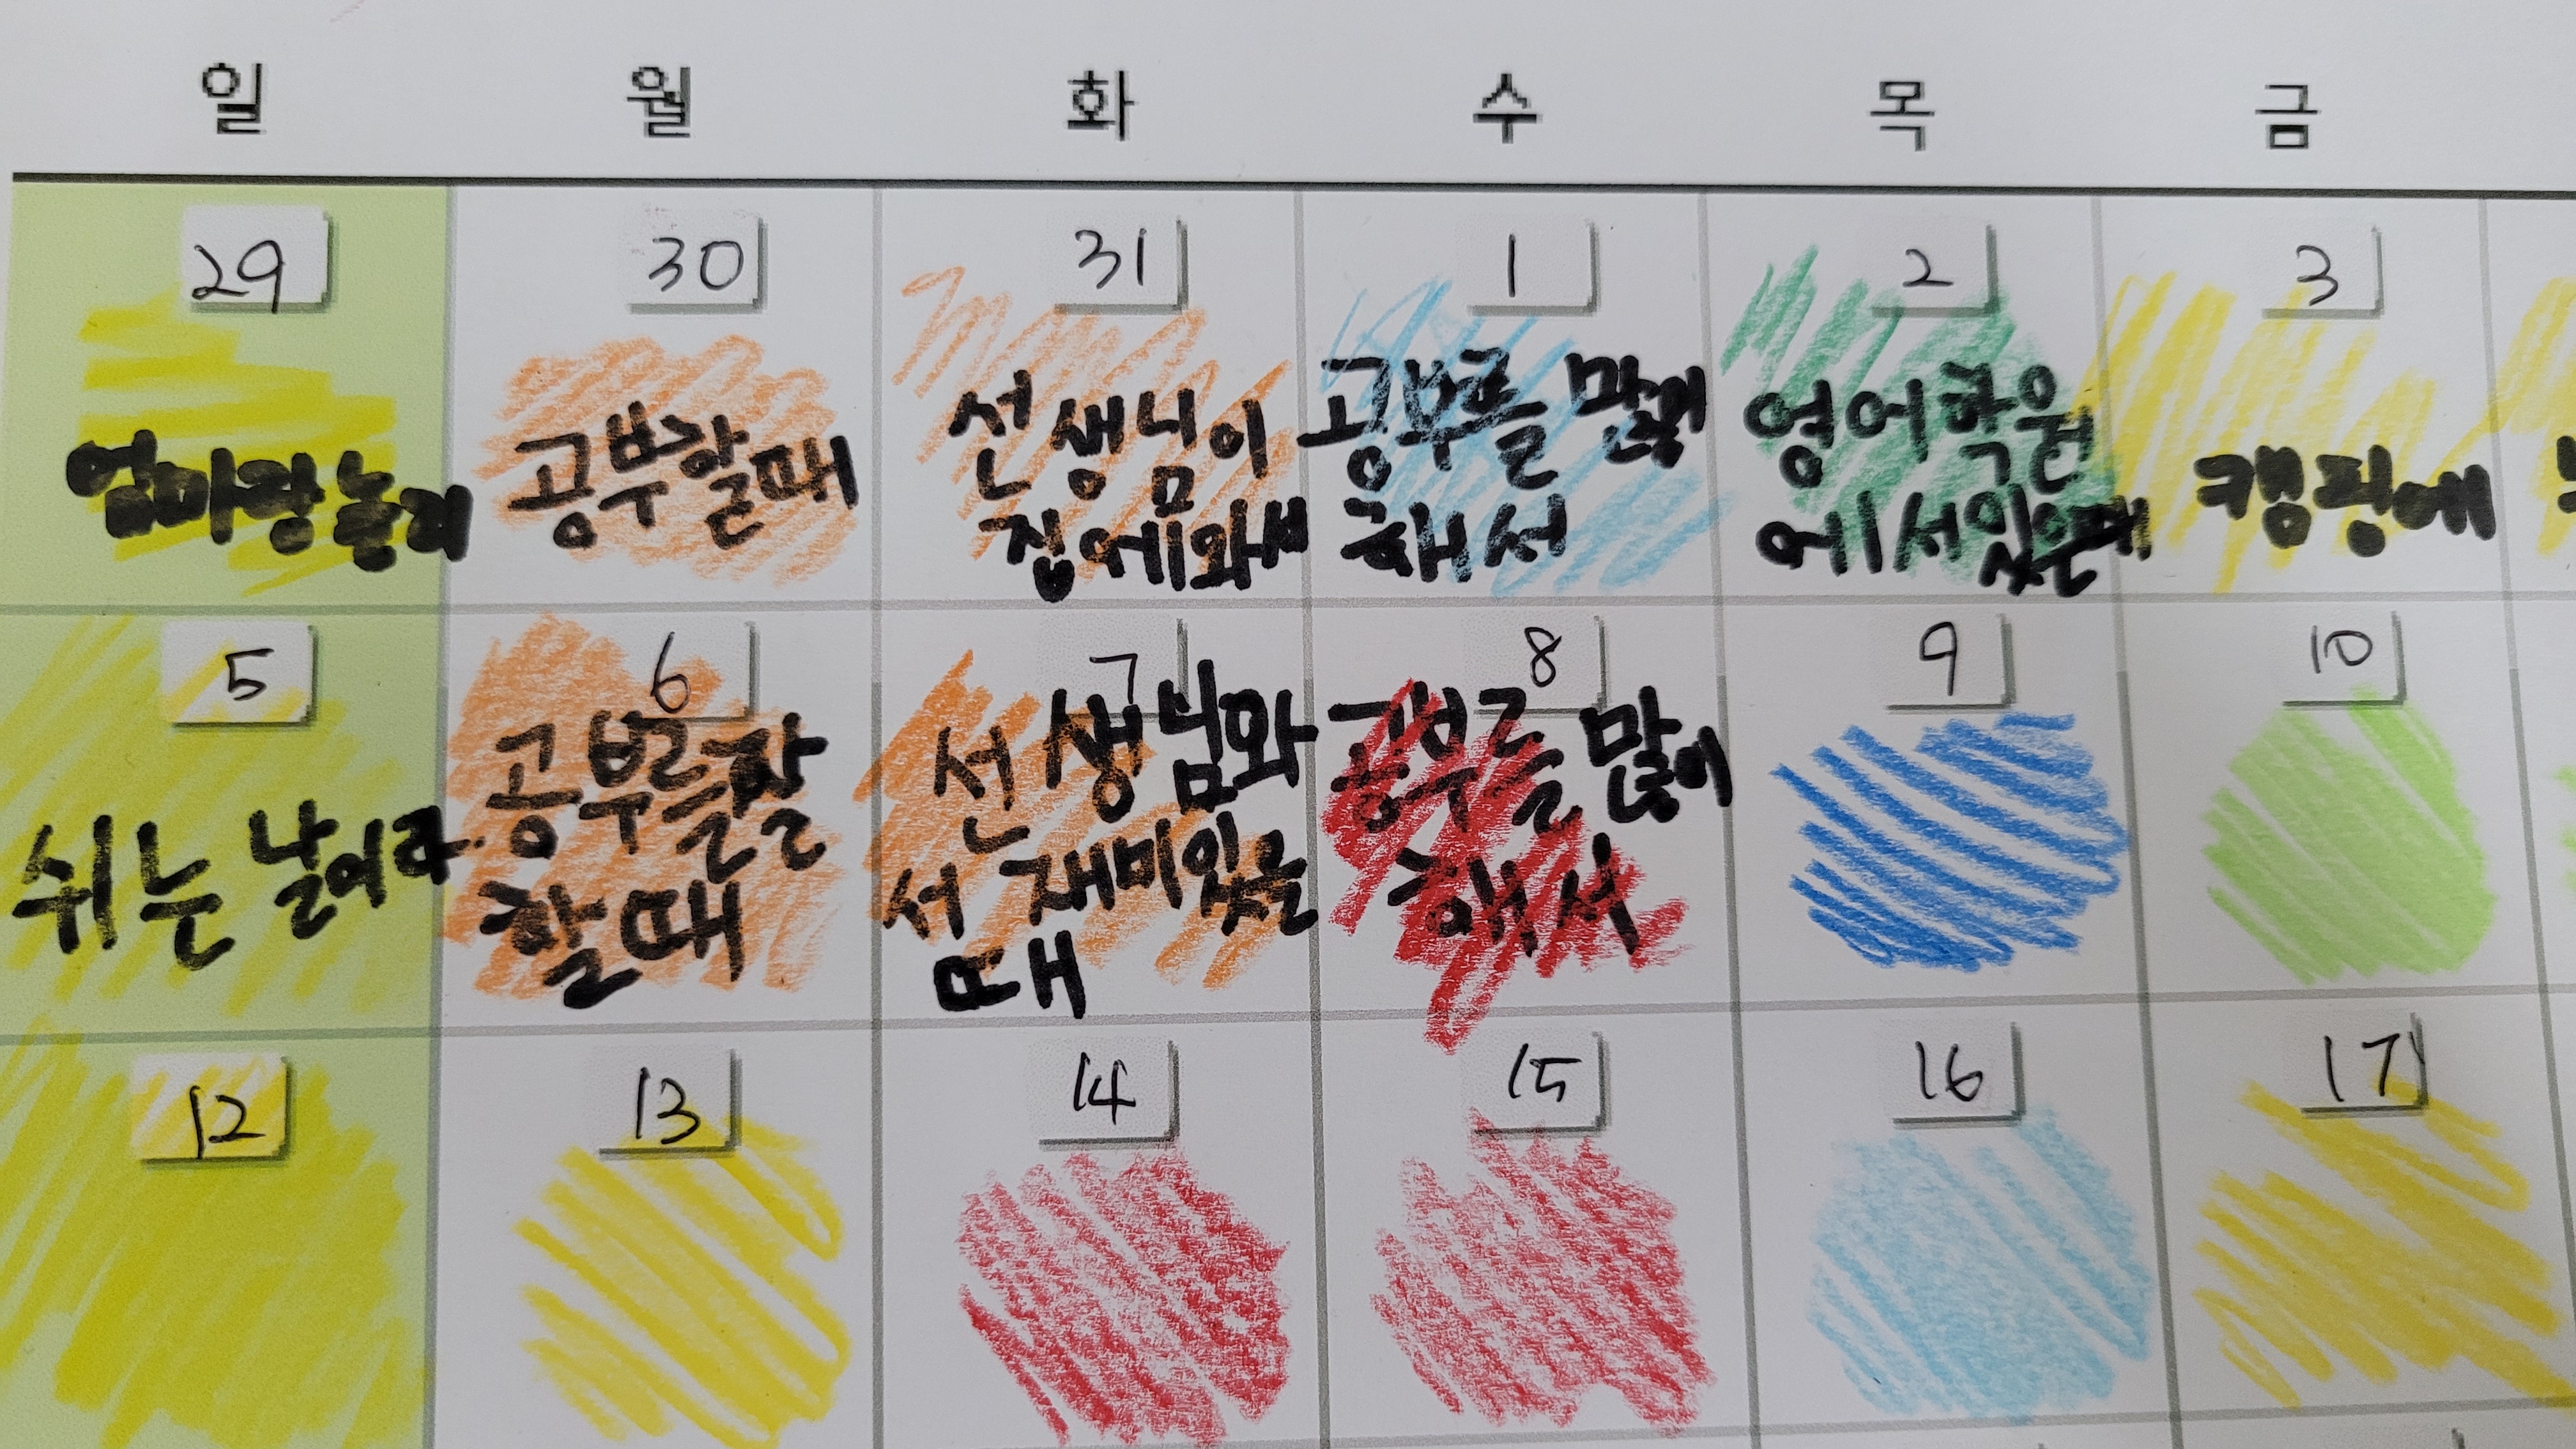 일 월 화 수 목 금
29 30 31 1 2 3
엄마랑놀러
공부할때
선생님이
집에와서
공부를 많이
해서
영어학원
에서있을때
캠핑에
5 6 7 8 9 10
쉬는 날이라
공부를잘
할때
선생님와
서 재미있을
때
공부를 많이
해서
12 13 14 15 16 17